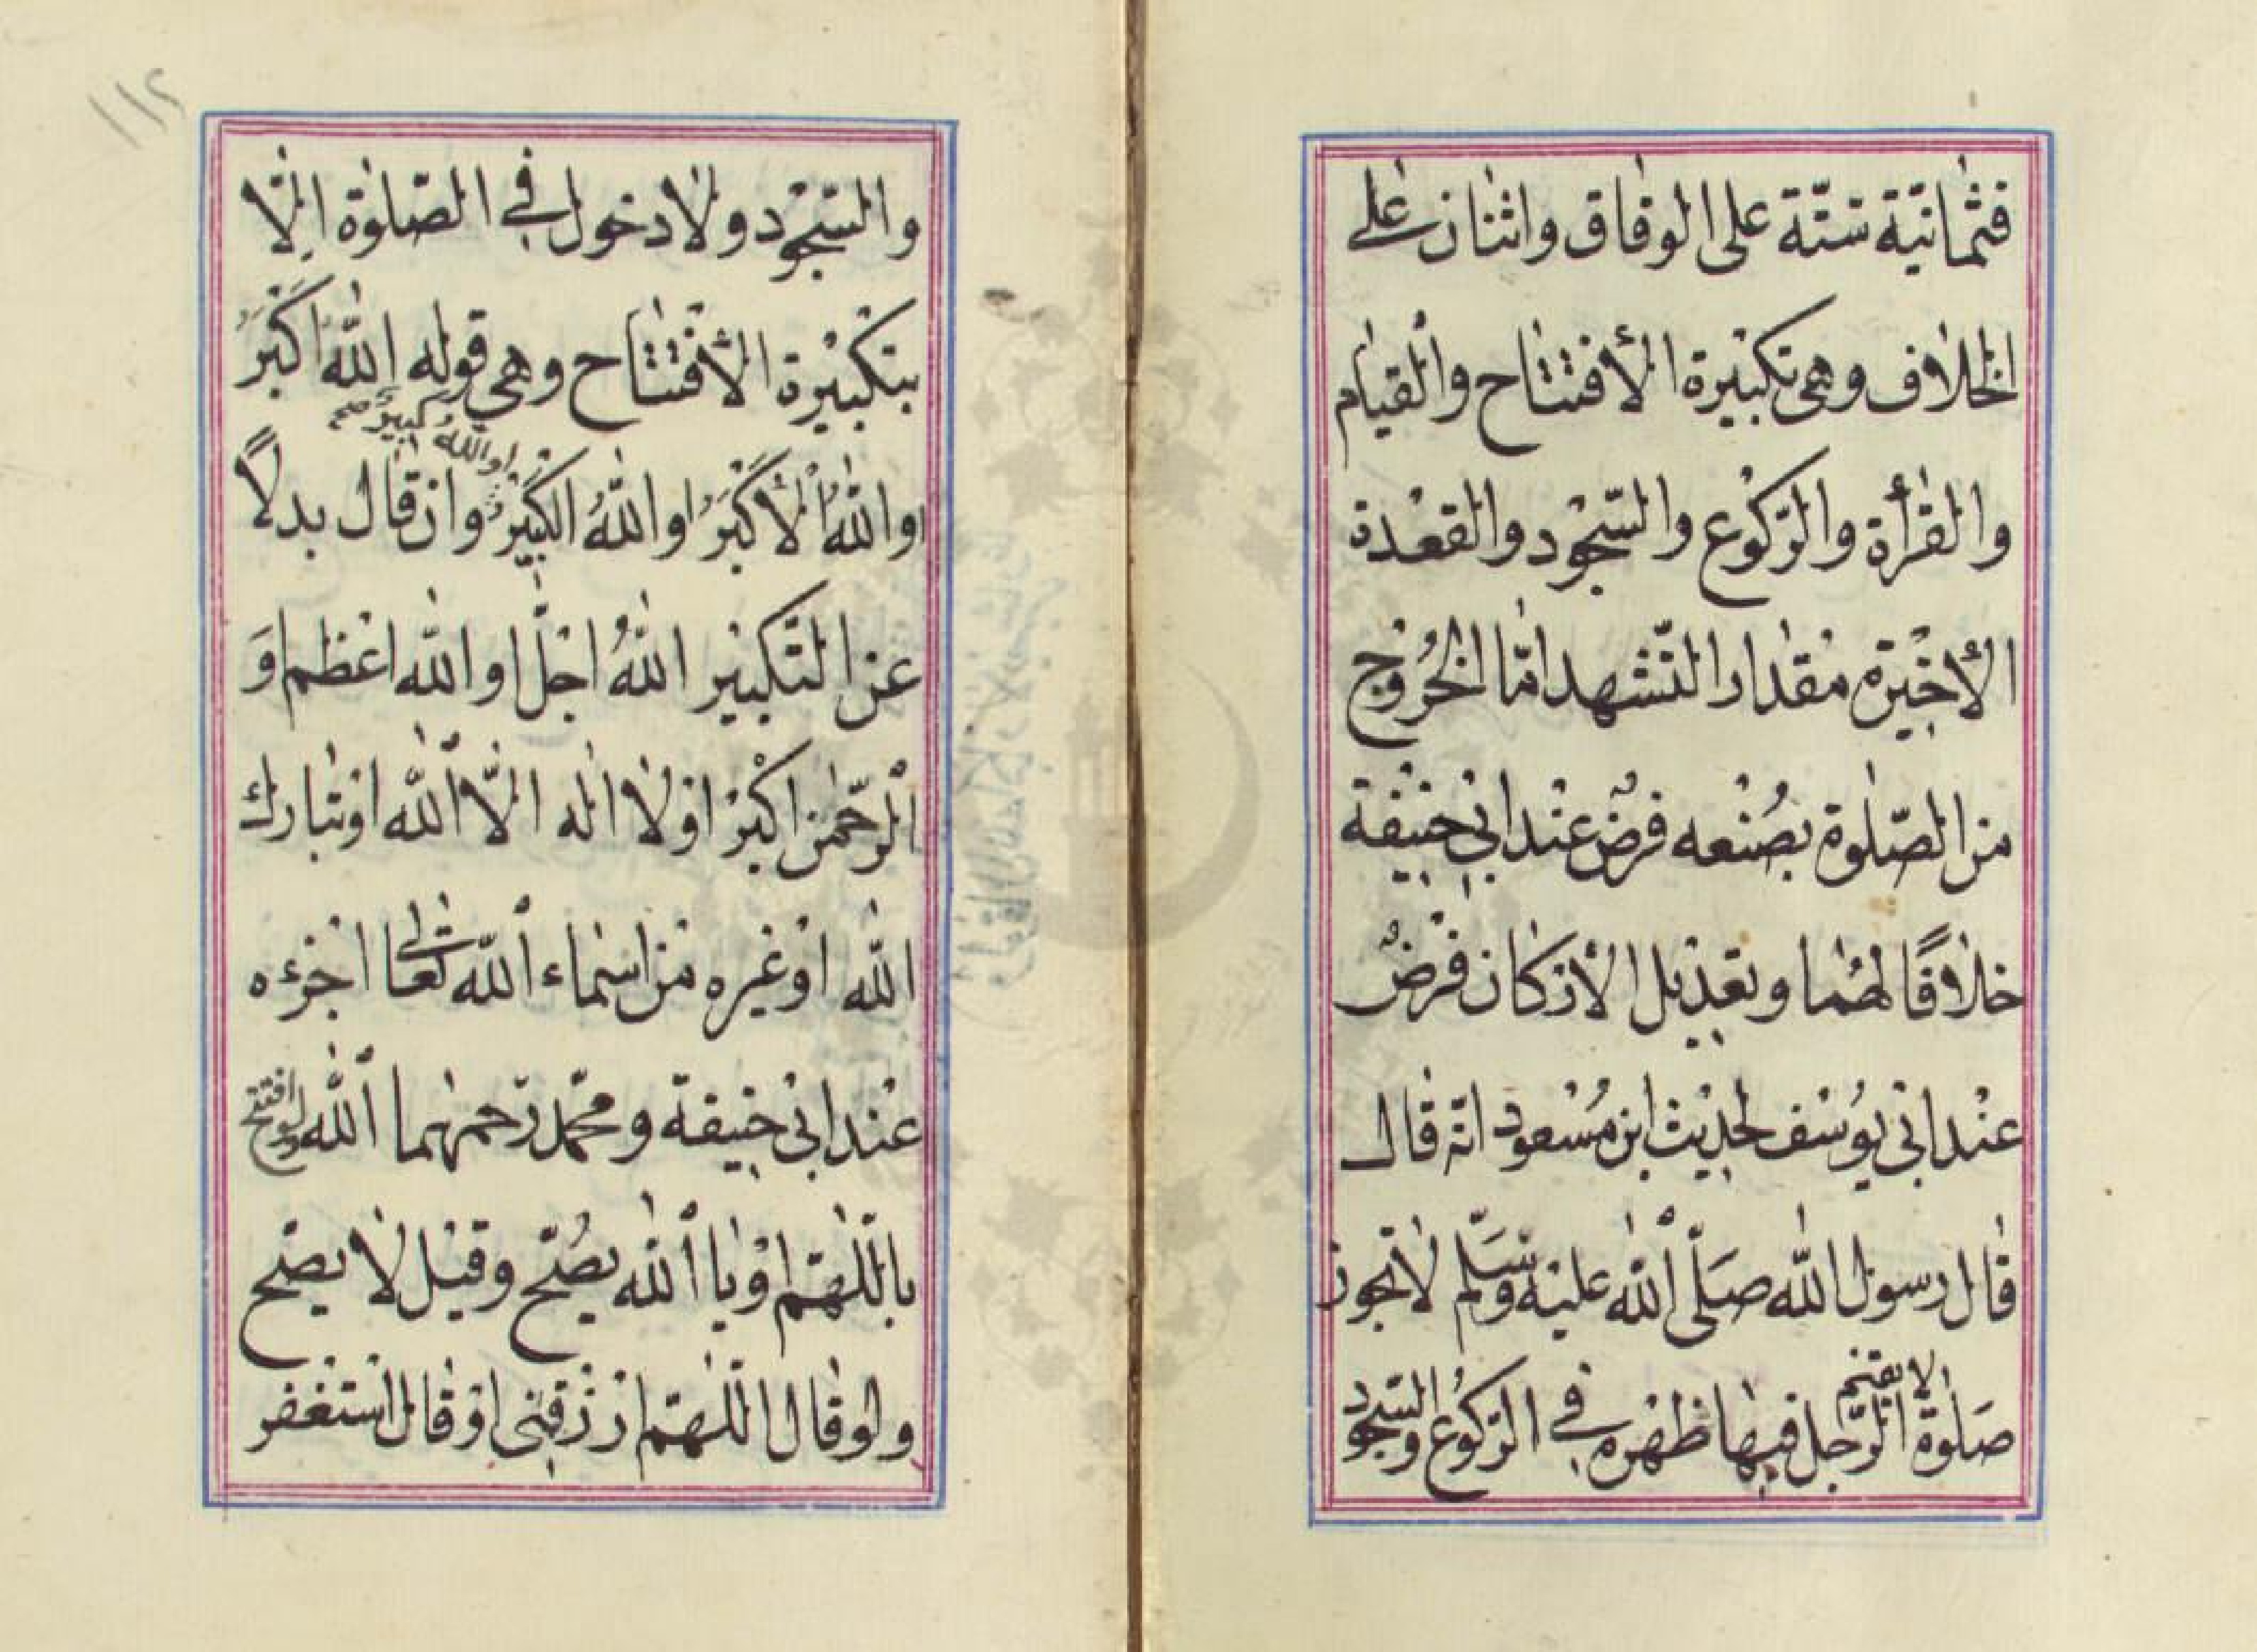 فثمانيّة ستّة على الوفاق واثنان على
الخلاف وهى تكبيرة الأفتتاح والقيام
والقرأة والرّكوع والسّجود والقعدة
الأخيرة مقدار التّشهد امّا الخروج
من الصّلوة بصُنعه فرض عند ابى حنيفة
خلافًا لهُما وتعديل الأركان فرض
عند ابى يوُسف لحديث ابن مُسعود انّه قال
قال رسول الله صَلّى الله عليه وسَلّم لا تجوز
الا يقتم
صَلوة الرّجل فيها ظهره في الرّكوُع والسّجود
١١٢
والسّجود ولا دخول في الصّلوة الّا
بتكبيرة الأفتتاح وهي قوله اللهُ اكبَرُ
اوالله كبير صح
اواللهُ الأكبَرُ اواللهُ الكبيرُ وان قال بدلاً
عن التّكبير اللهُ اجلّ اوالله اعظم اوَ
الرّحمن اكبر اولا اله الّا الله اوتبارك
الله اوغيره من اسماء الله تعالى اجزءه
عند ابى حنيفة ومحمّد رحمهما الله ولو افتتح
باللّهمّ اويا الله يصُحّ وقيل لا يصحّ
ولوقال اللّهمّ ارزقنى اوقال استغفر